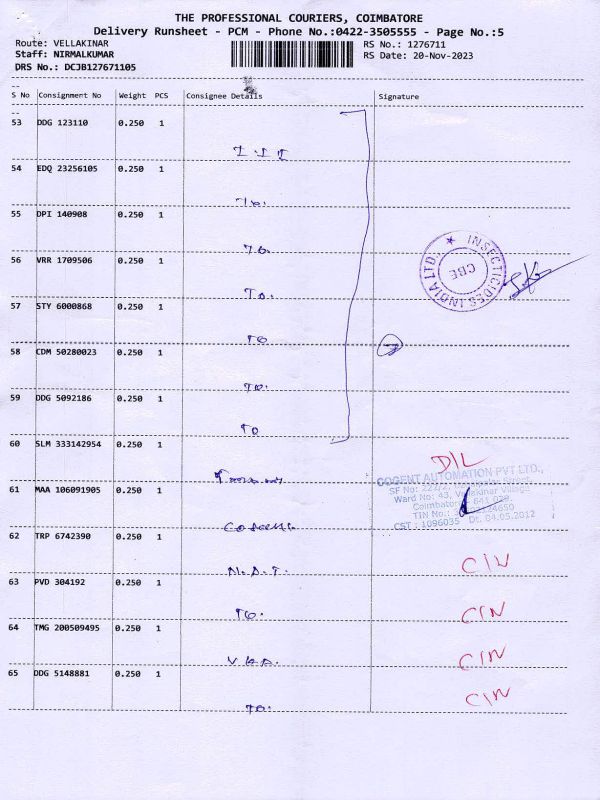 THE PROFESSIONAL COURIERS, COIMBATORE
Delivery Runsheet - PCM - Phone No.:0422-3505555 - Page No.:5
Route: VELLAKINAR
RS No.: 1276711
Staff: NIRMALKUMAR
RS Date: 20-Nov-2023
DRS No.: DCJB127671105
S No Consignment No Weight PCS Consignee Details Signature
53 DDG 123110 0.250 1
54 EDQ 23256105 0.250 1
To.
55 DPI 140908 0.250 1
To.
56 VRR 1709506 0.250 1
To.
INSECTICIDES INDIA LTD. CBE
57 STY 6000868 0.250 1
To
58 CDM 50280023 0.250 1
To.
59 DDG 5092186 0.250 1
To
60 SLM 333142954 0.250 1
D/L
COGENT AUTOMATION PVT LTD.,
61 MAA 106091905 0.250 1
Ward No: 43, Vellakinar Village
Coimbatore - 641 029.
TIN No.:
CST : 1096035 Dt. 04.05.2012
62 TRP 6742390 0.250 1
N.A.T.
C/N
63 PVD 304192 0.250 1
To.
C/N
64 TMG 200509495 0.250 1
C/N
65 DDG 5148881 0.250 1
To.
C/N